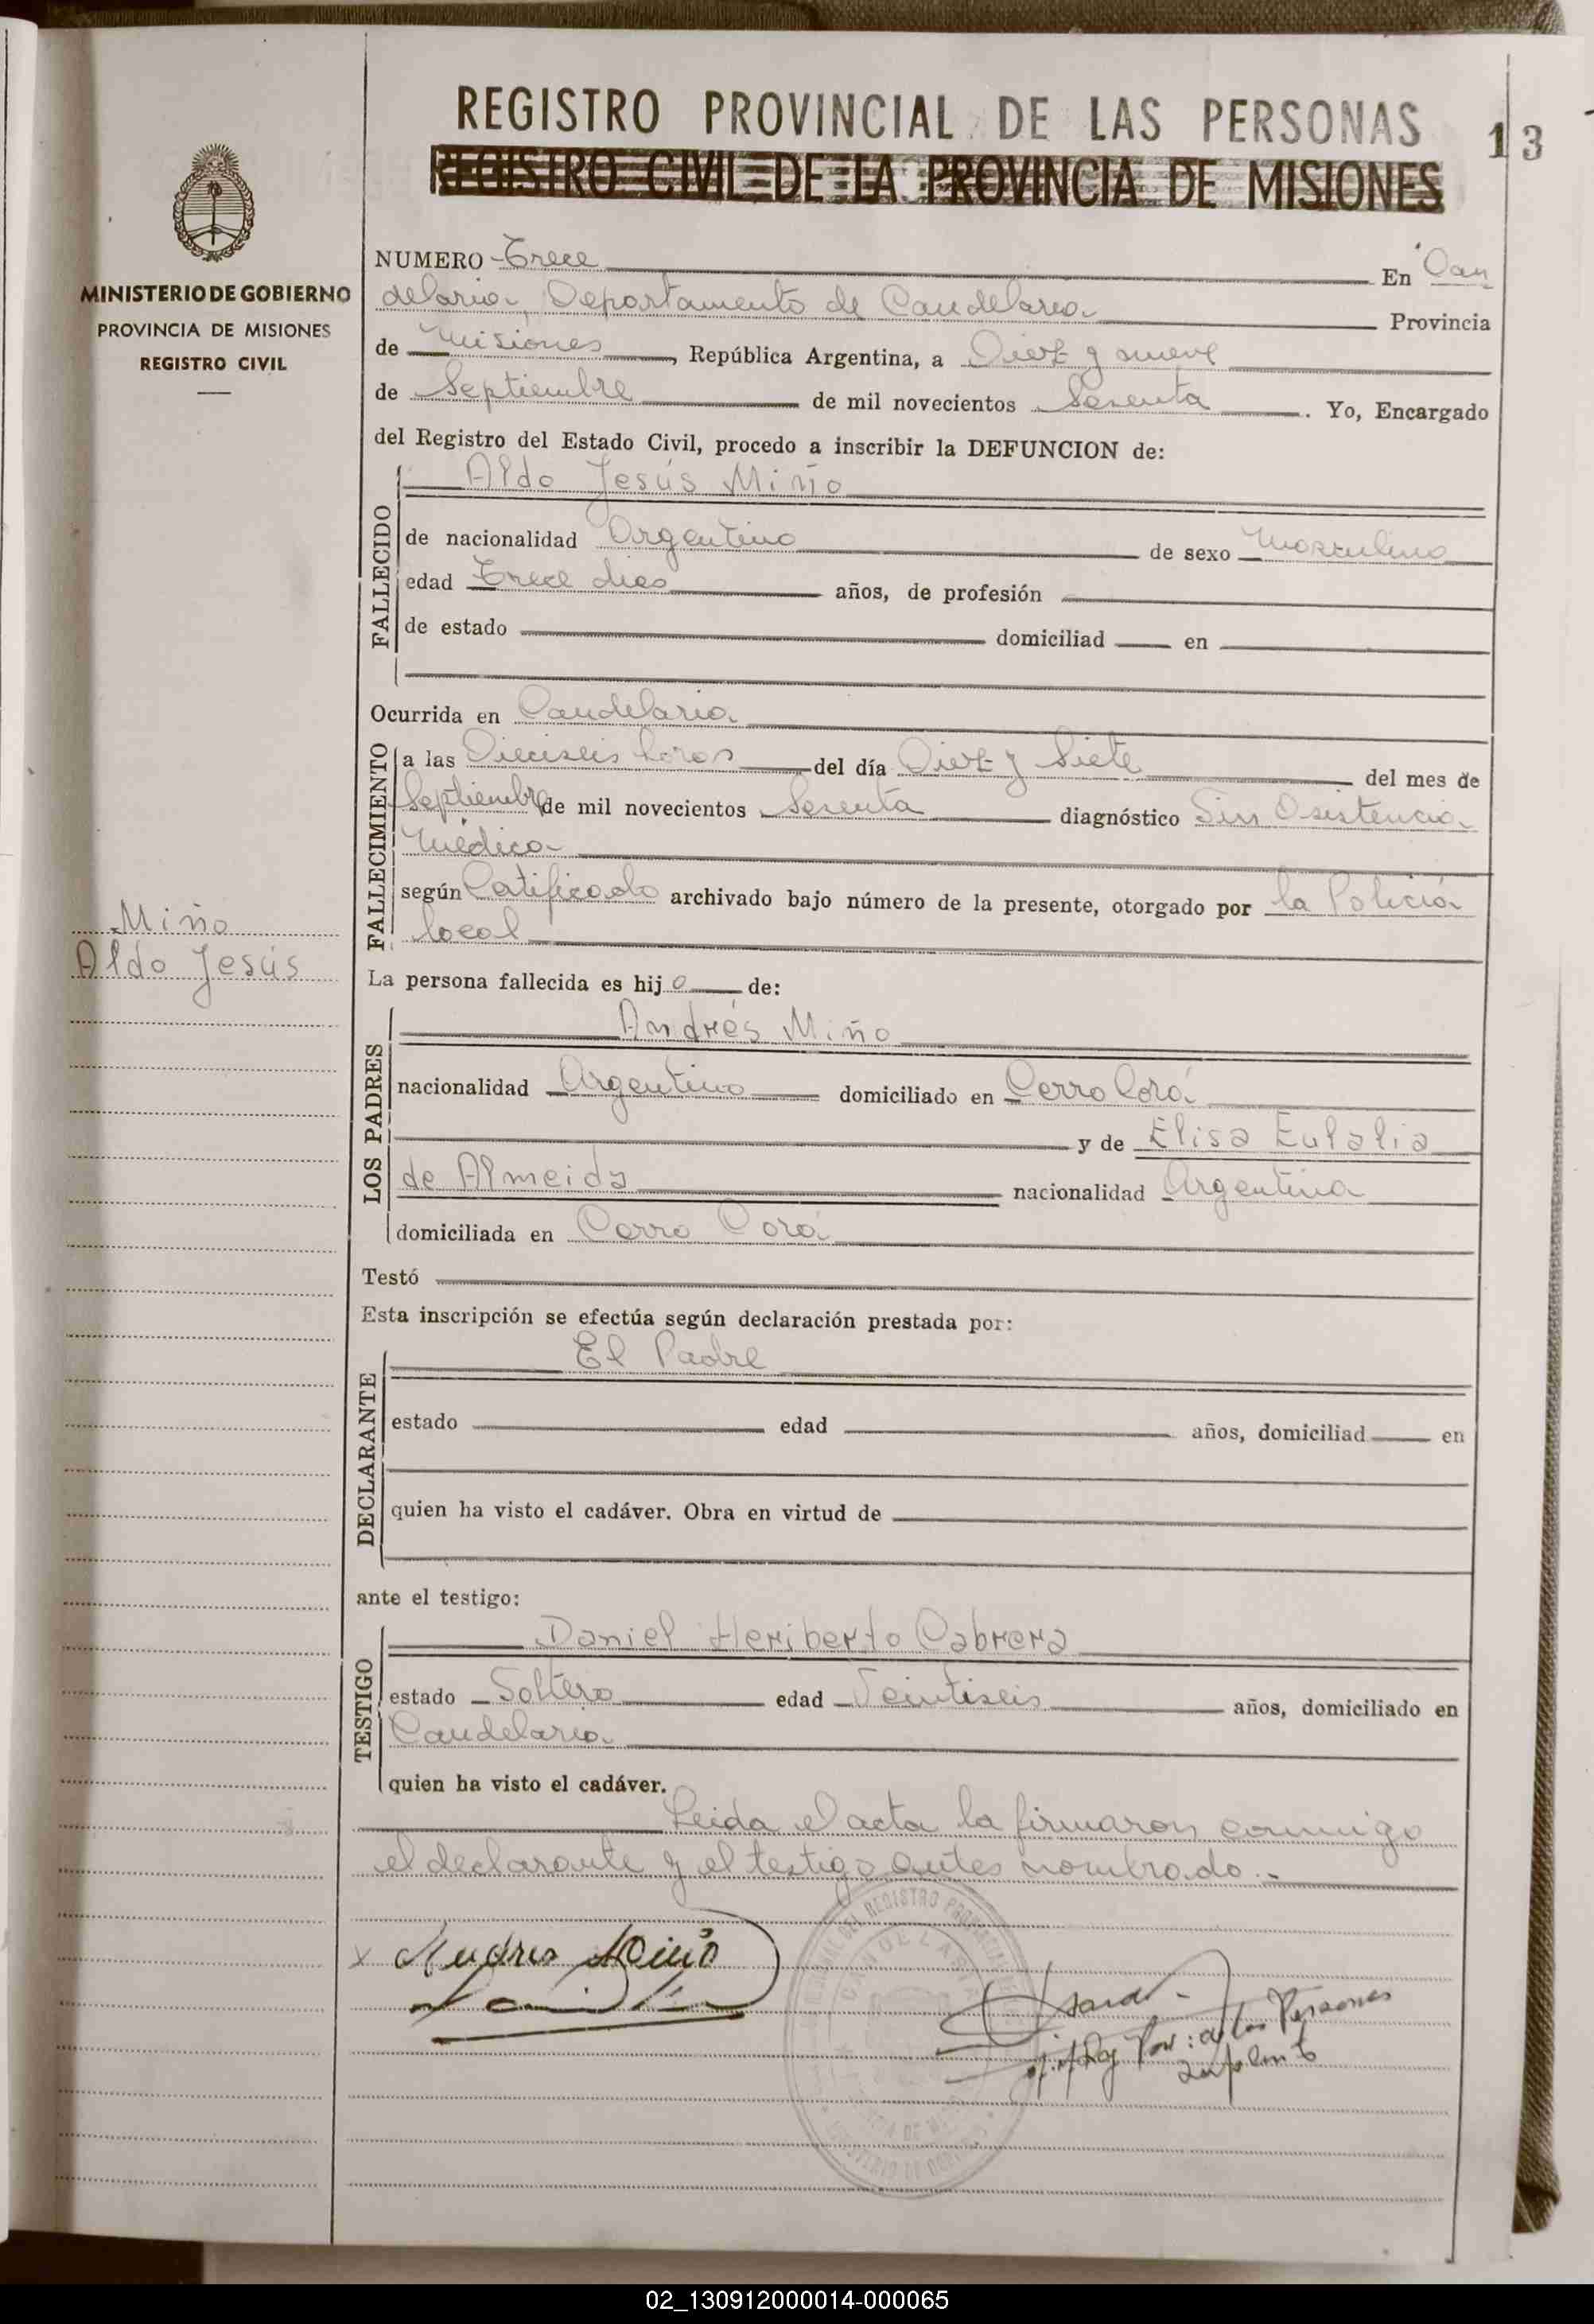 REGISTRO PROVINCIAL DE LAS PERSONAS
13
REGISTRO CIVIL DE LA PROVINCIA DE MISIONES
MINISTERIO DE GOBIERNO
PROVINCIA DE MISIONES
REGISTRO CIVIL
NUMERO Trece En Can
delaria, Departamento de Candelaria Provincia
de Misiones, República Argentina, a Diez y nueve
de Septiembre de mil novecientos Sesenta. Yo, Encargado
del Registro del Estado Civil, procedo a inscribir la DEFUNCION de:
Aldo Jesús Miño
FALLECIDO
de nacionalidad Argentino de sexo Masculino
edad Trece dias años, de profesión
de estado domiciliad en
Ocurrida en Candelaria
FALLECIMIENTO
a las Dieciseis horas del día Diez y Siete del mes de
Septiembre de mil novecientos Sesenta diagnóstico Sin Asistencia
Médica
según Certificado archivado bajo número de la presente, otorgado por la Policía
local
Miño
Aldo Jesús
La persona fallecida es hijo de:
LOS PADRES
Andrés Miño
nacionalidad Argentino domiciliado en Cerro Corá
y de Elisa Eulalia
de Almeida nacionalidad Argentina
domiciliada en Cerro Corá
Testó
Esta inscripción se efectúa según declaración prestada por:
El Padre
DECLARANTE
estado edad años, domiciliad en
quien ha visto el cadáver. Obra en virtud de
ante el testigo:
TESTIGO
Daniel Heriberto Cabrera
estado Soltero edad Veintiseis años, domiciliado en
Candelaria
quien ha visto el cadáver.
Leida el acta la firmaron conmigo
el declarante y el testigo antes nombrado.-
x Andres Miño
de las Personas
Suplente
02_130912000014-000065